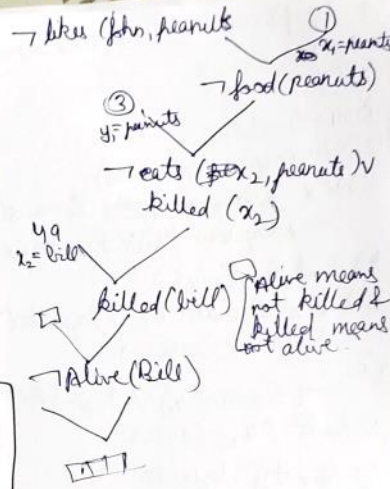 ¬ likes (John, peanuts
①
x₁=peanuts
¬food(peanuts)
③
y₁=peanuts
¬eats (x₂, peanuts)∨
killed (x₂)
4a
x₂=bill
killed(bill)
Alive means
not killed &
killed means
not alive.
¬Alive(Bill)